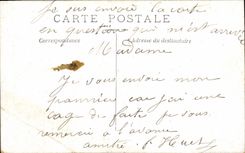 Je vous envoie la carte
CARTE POSTALE
en question qui m'est arrivé
Correspondance Adresse du destinataire
Madame
Je vous envoie mon
pannier car j'ai une
cage de faite je vous
remercie à l'avance
amitié J. Huet